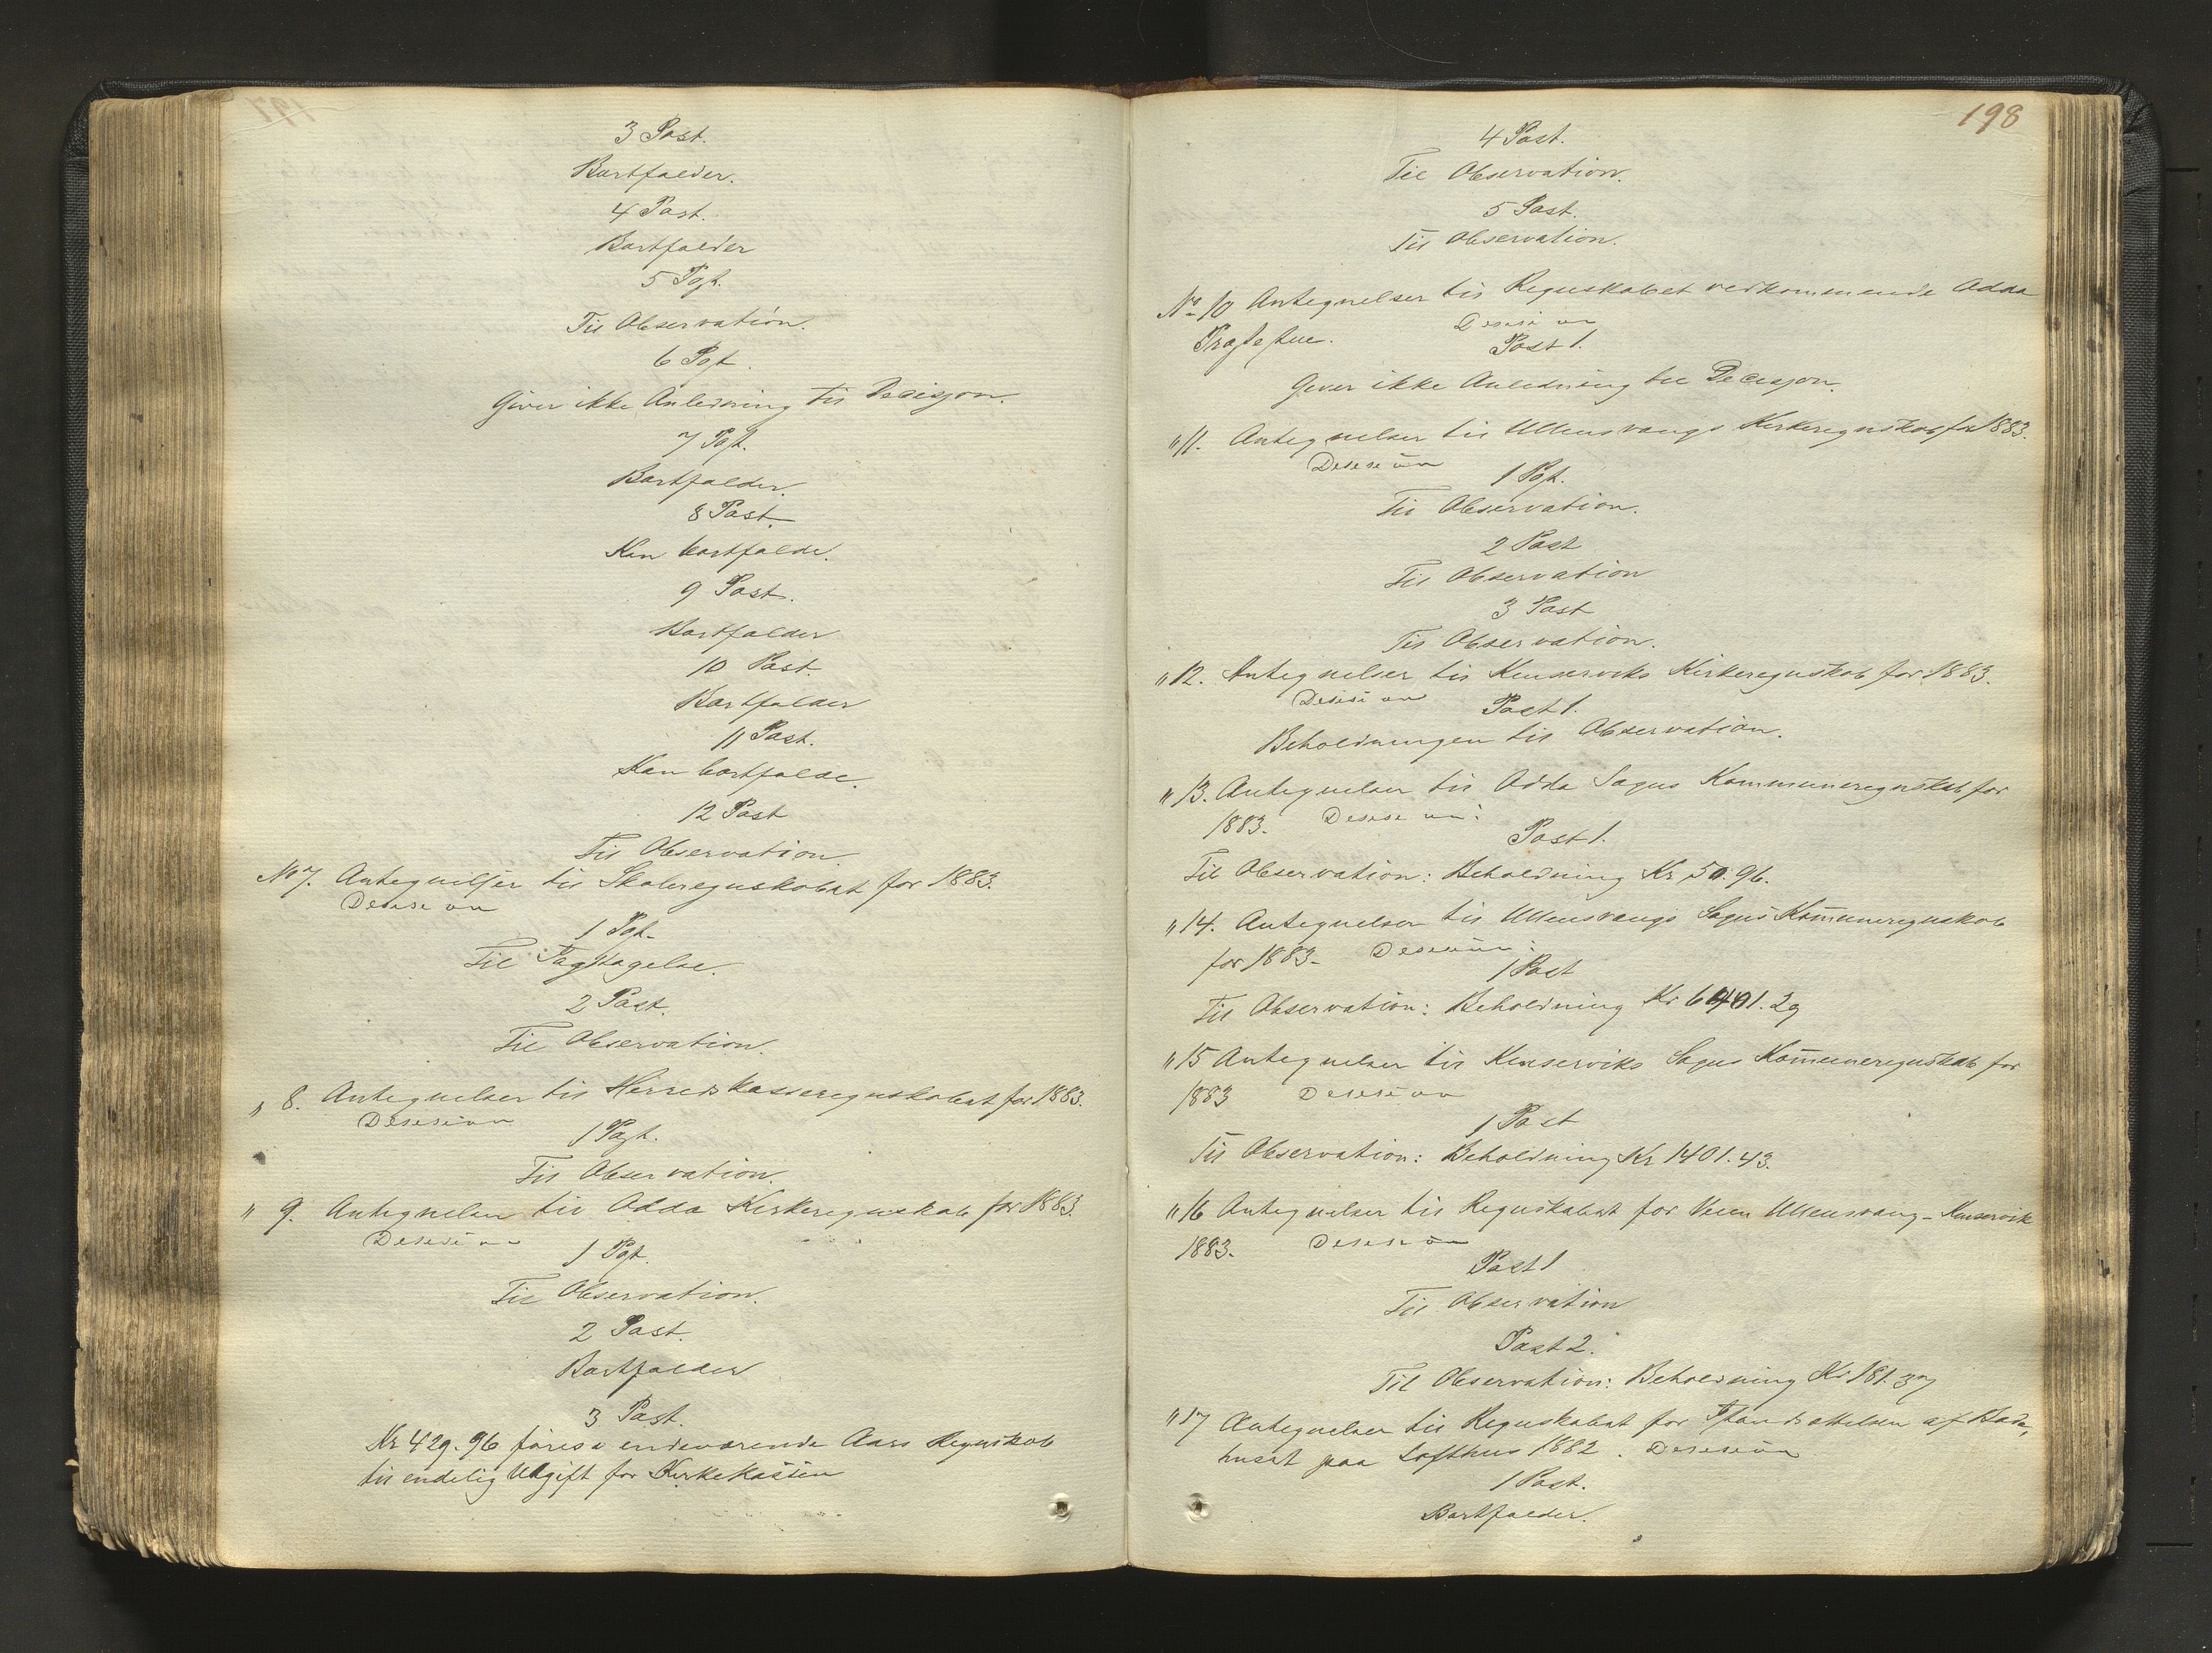 3 Post.
Bortfalder.
4 Post.
Bortfalder
5 Post.
Til Observation.
6 Post.
Giver ikke Anledning til Decisjon.
7 Post.
Bortfalder.
8 Post.
Kan bortfalde.
9 Post.
Bortfalder
10 Post.
Bortfalder
11 Post.
Kan bortfalde.
12 Post
Til Observation.
No 7. Antegnelser til Skoleregnskabet for 1883.
Desesion
1 Post.
Til Iagttagelse.
2 Post.
Til Observation.
" 8. Antegnelser til Herredskasseregnskabet for 1883.
Desesion
1 Post.
Til Observation.
" 9. Antegnelser til Odda Kirkeregnskab for 1883.
Desesion
1 Post.
Til Observation.
2 Post.
Bortfalder
3 Post.
Kr 429.96 føres i endeværende Aars Regnskab
til endelig Udgift for Kirkekassen
198
4 Post.
Til Observation.
5 Post.
Til Observation.
No 10 Antegnelser til Regnskabet vedkommende Odda
Præstestue.
Desesion
Post 1.
Giver ikke Anledning til Decesjon.
" 11. Antegnelser til Ullensvangs Kirkeregnskab for 1883.
Desesion
1 Post.
Til Observation.
2 Post
Til Observation
3 Post
Til Observation.
" 12. Antegnelser til Kinserviks Kirkeregnskab for 1883.
Desesion
Post 1.
Beholdningen til Observation.
" 13. Antegnelser til Odda Sogns Kommuneregnskab for
1883. Desesion:
Post 1.
Til Observation: Beholdning Kr 50.96.
" 14. Antegnelser til Ullensvangs Sogns Kom̅uneregnskab
for 1883. Desesion:
1 Post
Til Observation: Beholdning Kr 6401.29
" 15 Antegnelser til Kinserviks Sogns Kom̅uneregnskab for
1883 Desesion
1 Post
Til Observation: Beholdning Kr 1401.43.
" 16 Antegnelser til Regnskabet for Veien Ullensvang - Kinservik
1883. Desesion
Post 1
Til Observation
Post 2.
Til Observation: Beholdning Kr 181.37
" 17 Antegnelser til Regnskabet for Istandsættelsen af Bade,
huset paa Lofthus 1882. Desesion
1 Post.
Bortfalder.